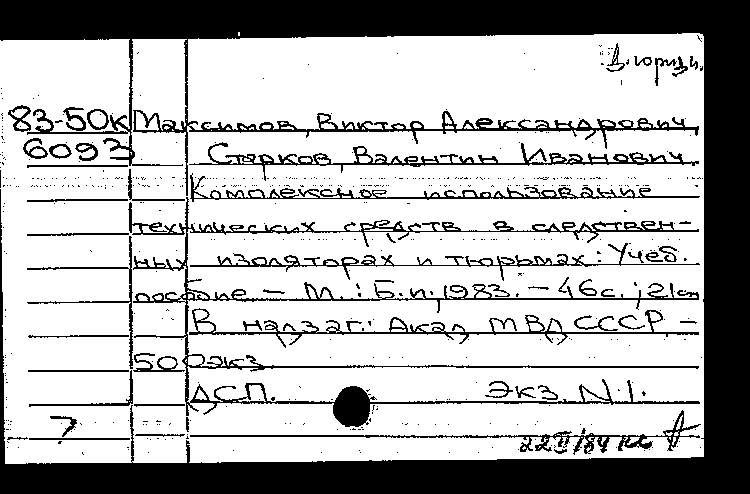 83-50к Максимов, Виктор Александрович,
6093 Старков, Валентин Иванович.
Комплексное использование
технических средств в следствен-
ных изоляторах и тюрьмах: Учеб.
пособие - М.: Б.и., 1983. - 46с.; 21см
В надзаг.: Акад МВД СССР -
500экз.
ДСП. Экз. N.1.
7
22 II/84